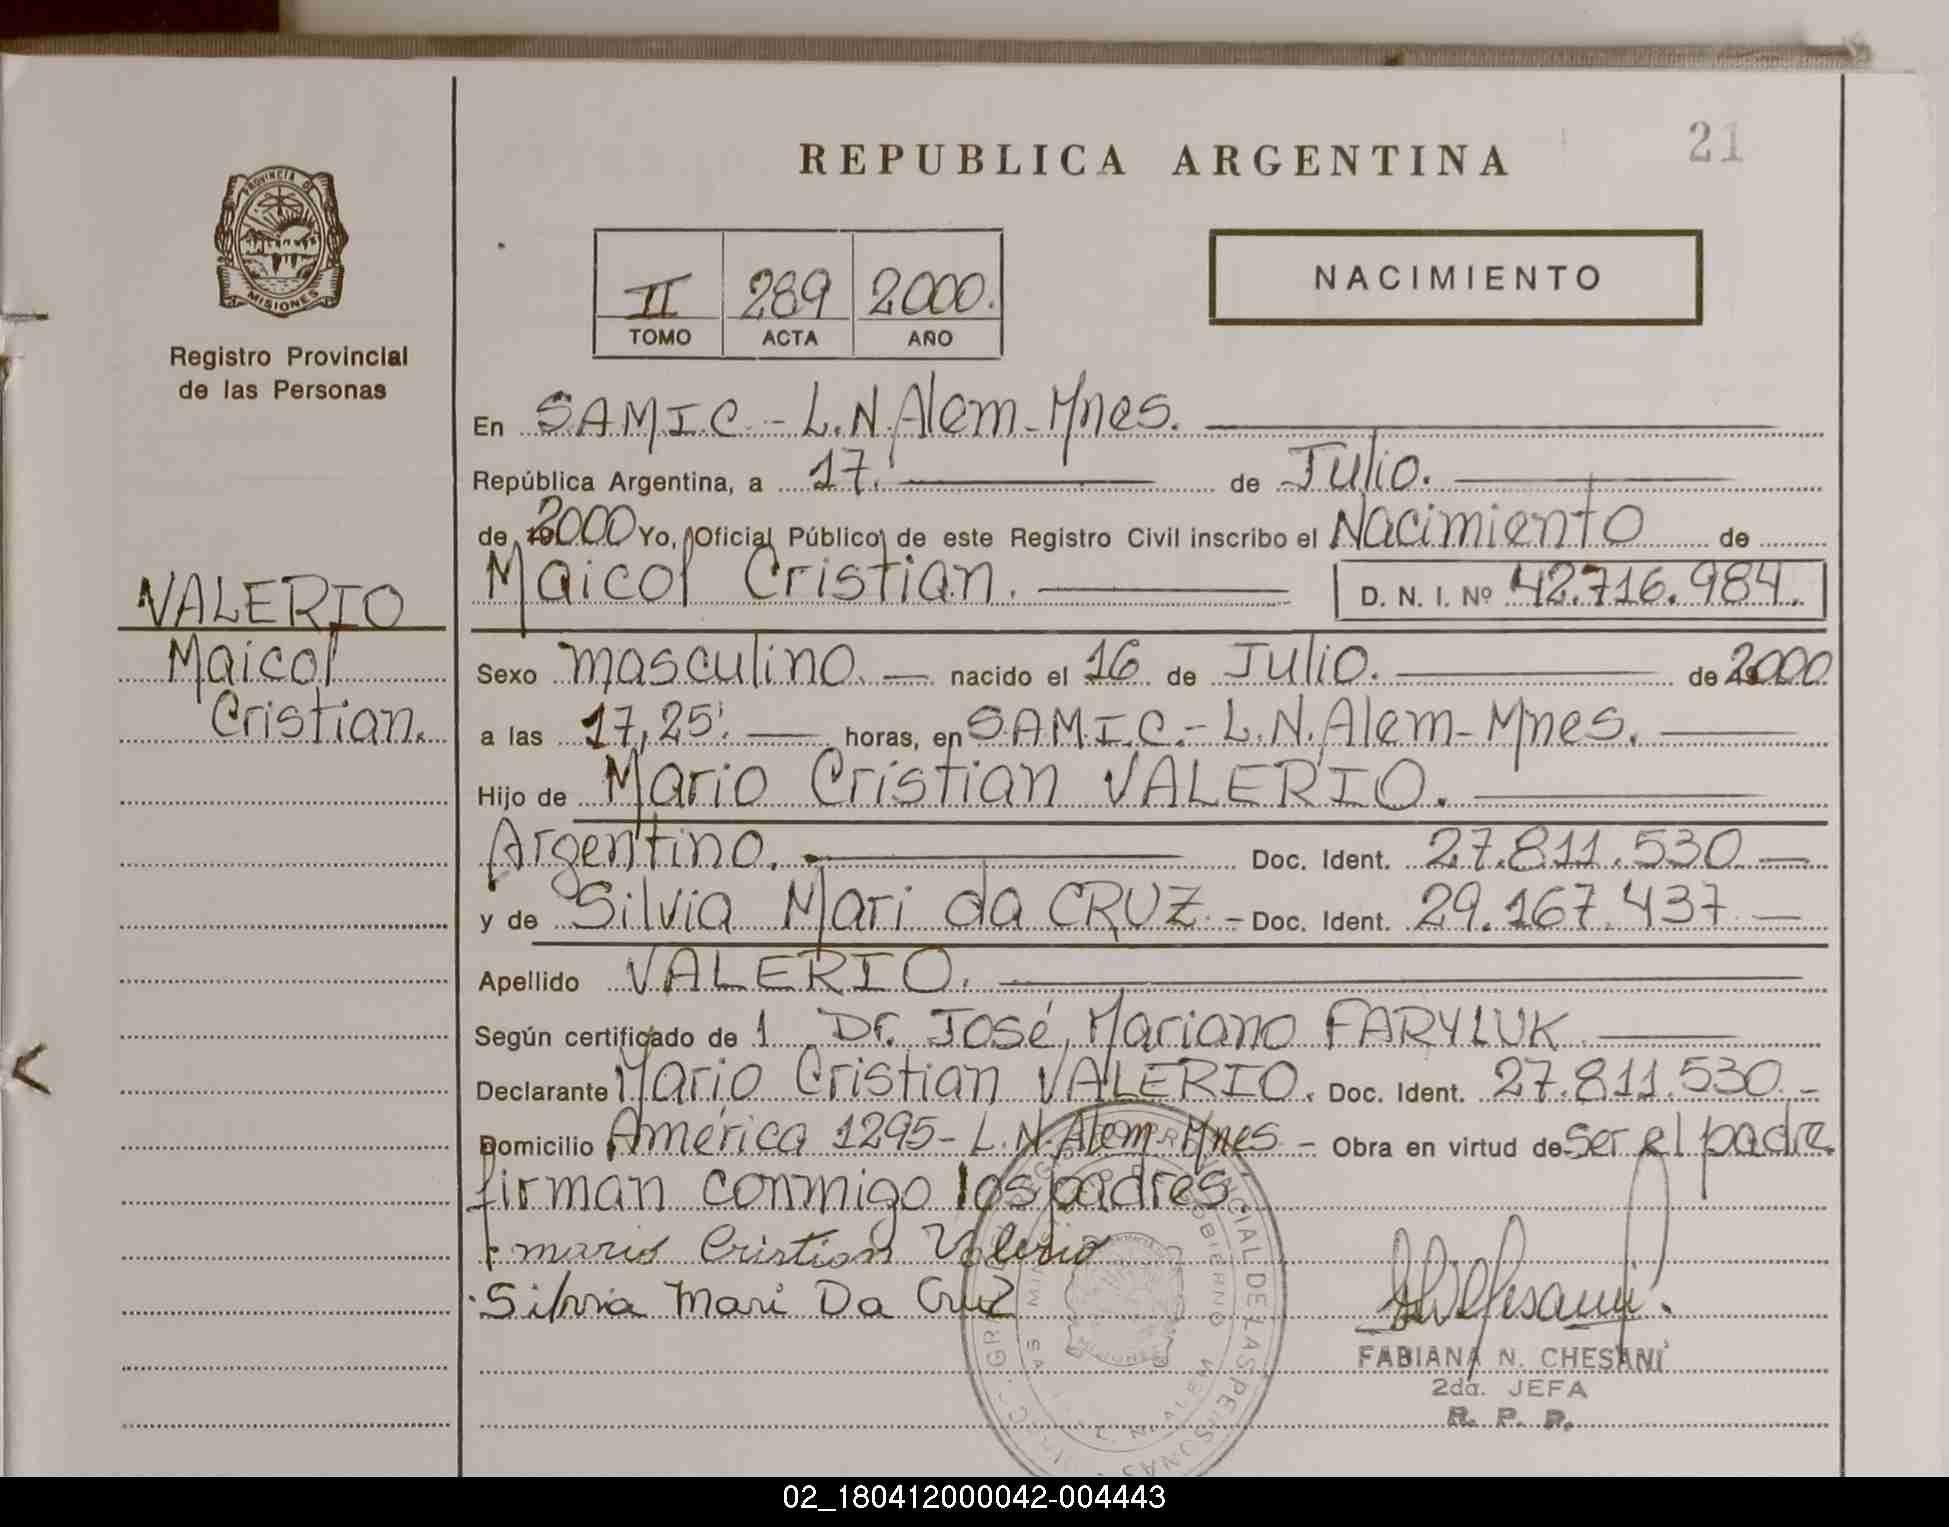 REPUBLICA ARGENTINA
21
PROVINCIA DE
MISIONES
Registro Provincial
de las Personas
II 289 2000.
TOMO ACTA AÑO
NACIMIENTO
En SAMIC.- L.N.Alem-Mnes.
República Argentina, a 17. de Julio.
de 2000 Yo, Oficial Público de este Registro Civil inscribo el Nacimiento de
Maicol Cristian. D. N. I. Nº 42.716.984.
VALERIO
Maicol
Cristian.
Sexo masculino. nacido el 16 de Julio. de 2000
a las 17,25'. horas, en SAMIC.- L.N.Alem-Mnes.
Hijo de Mario Cristian VALERIO.
Argentino. Doc. Ident. 27.811.530
y de Silvia Mari da CRUZ.- Doc. Ident. 29.167.437
Apellido VALERIO.
Según certificado de 1 Dr. José Mariano FARYLUK
Declarante Mario Cristian VALERIO. Doc. Ident. 27.811.530.-
Domicilio América 1295- L.N.Alem-Mnes - Obra en virtud de ser el padre
firman conmigo los padres.
mario Cristian Valerio
Silvia Mari Da Cruz
FABIANA N. CHESANI
2da. JEFA
R. P. P.
02_180412000042-004443